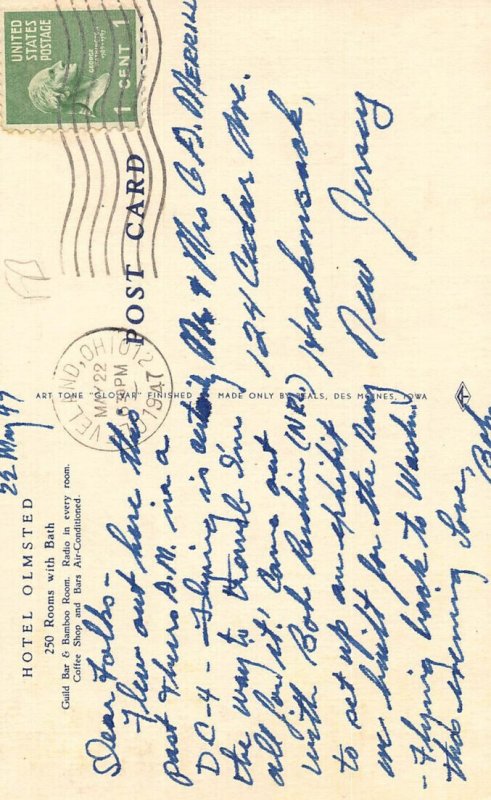 HOTEL OLMSTED
250 Rooms with Bath
Guild Bar & Bamboo Room. Radio in every room.
Coffee Shop and Bars Air-Conditioned.
22 May 47
Dear Folks -
Flew out here this
past Thurs A.M. in a
DC-4 - Flying is
the way to travel I'm
all for it. Came out
with Bob (NRL)
to set up an exhibit
we built for the Navy
- Flying back to Wash.
this evening
Love,
Bob
ART TONE "GLO-VAR" FINISHED
MADE ONLY BY BEALS, DES MOINES, IOWA
POST CARD
VELAND, OHIO
MAY 22
PM
1947
UNITED
STATES
POSTAGE
1 CENT 1
Mr & Mrs C D. MERRILL
124 Cedar Ave.
Hackensack,
New Jersey